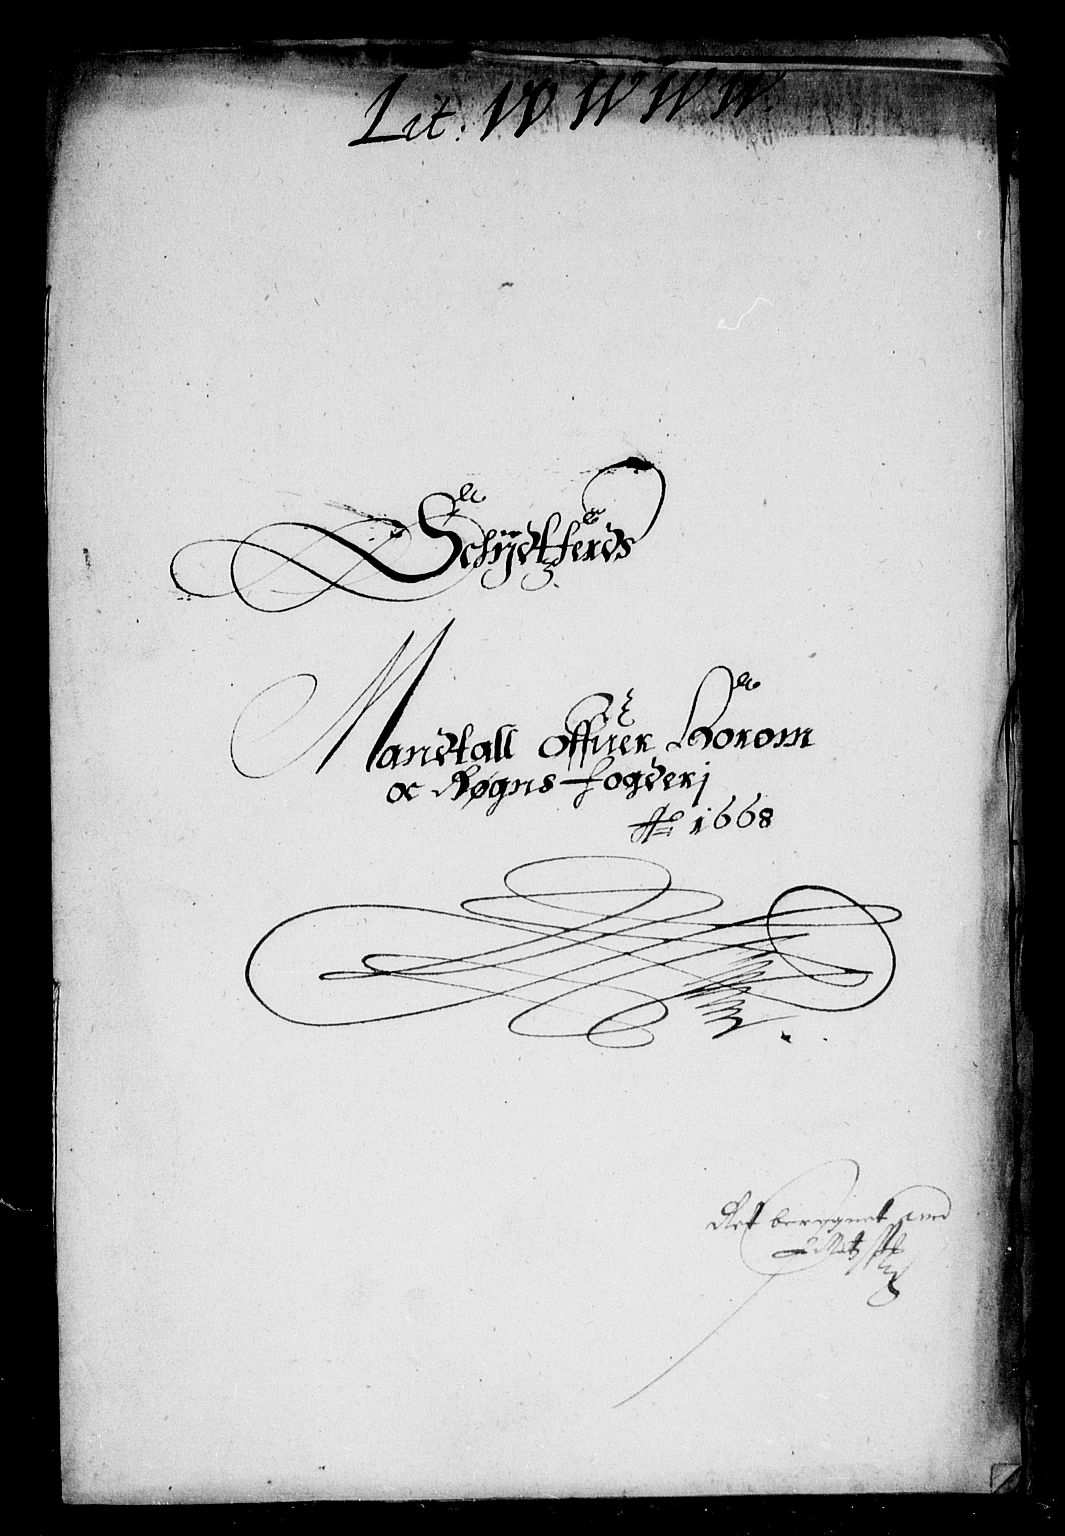 Lit: W W W W.
Schydtzferds
Mandtall offuer Borom
oc Røgns fogderj
Ao 1668
Ret beregnet